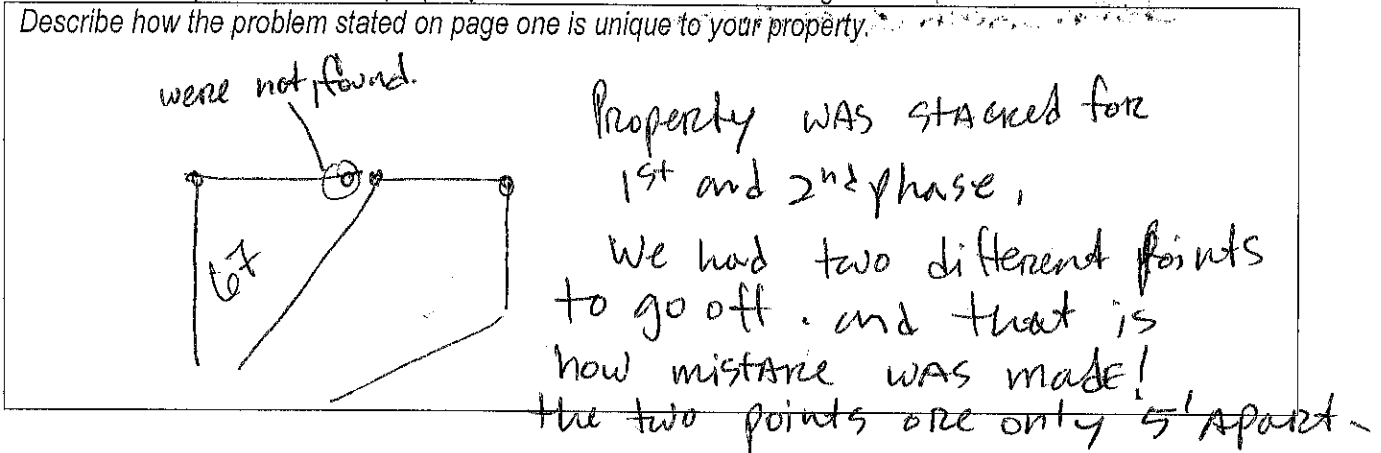 Describe how the problem stated on page one is unique to your property.
were not found.
67
Property was stacked for
1st and 2nd phase,
We had two different points
to go off. and that is
how mistake was made!
the two points are only 5' Apart.